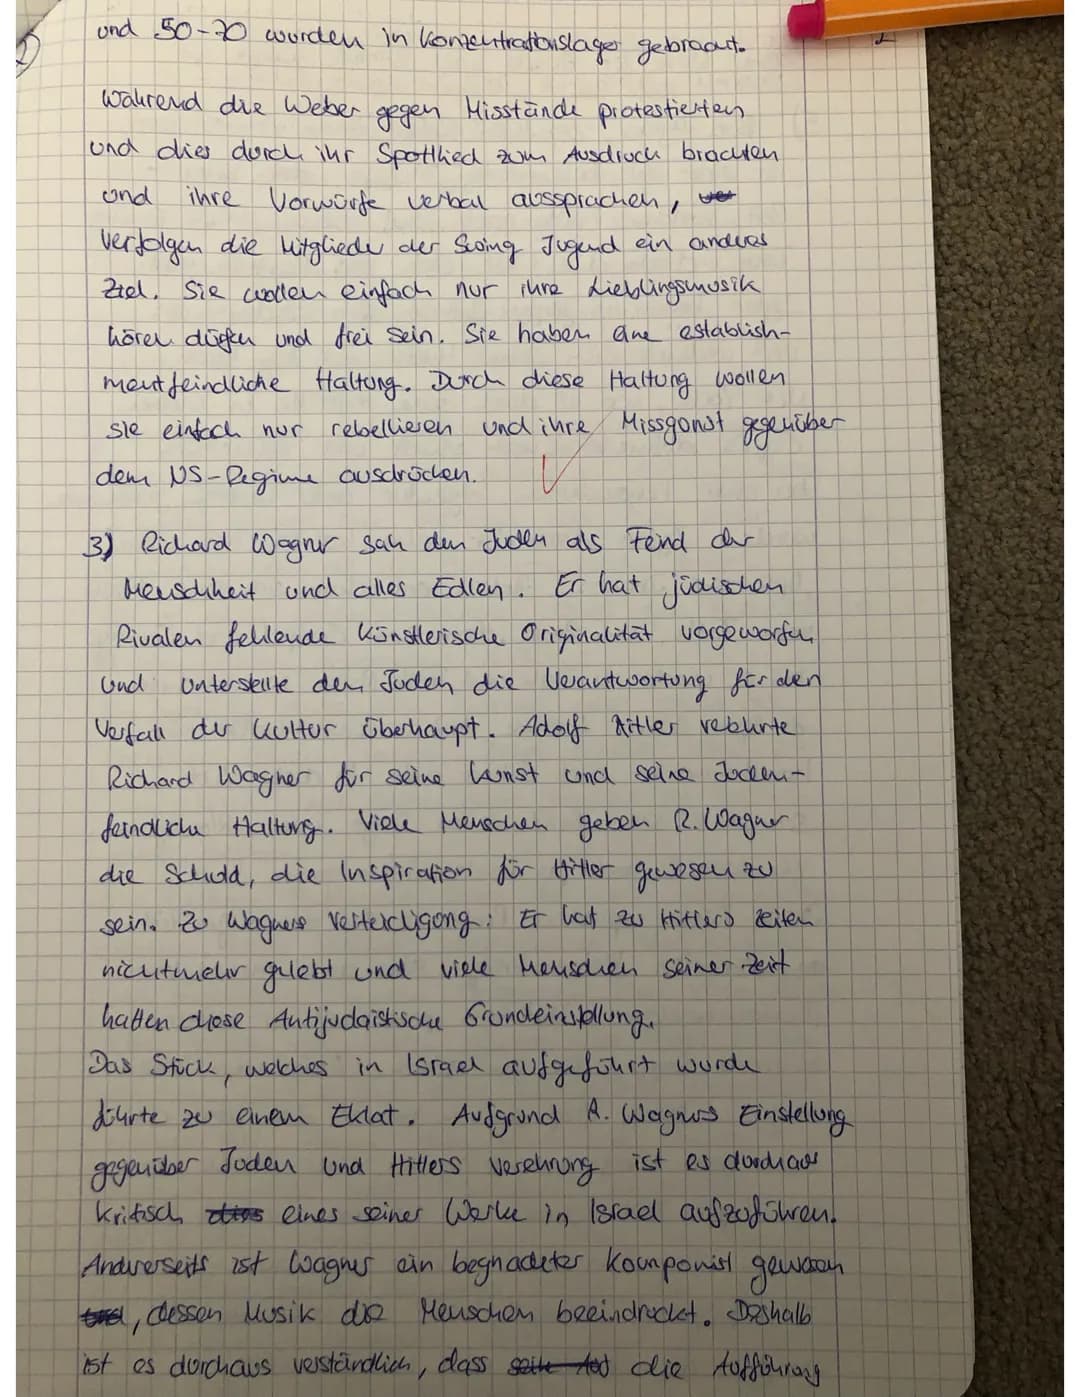 und 50-70 wurden in Konzentrationslager gebracht.
Während die Weber gegen Misstände protestierten
und dies durch ihr Spottlied zum Ausdruck brachten
und ihre Vorwürfe verbal aussprachen,
verfolgen die Mitglieder der Swing Jugend ein anderes
Ziel. Sie wollen einfach nur ihre Lieblingsmusik
hören dürfen und frei sein. Sie haben eine establish-
mentfeindliche Haltung. Durch diese Haltung wollen
sie einfach nur rebellieren und ihre Missgunst gegenüber
dem NS-Regime ausdrücken.
3) Richard Wagner sah den Juden als Feind der
Menschheit und alles Edlen. Er hat jüdischen
Rivalen fehlende künstlerische Originalität vorgeworfen
und unterstellte den Juden die Verantwortung für den
Verfall der Kultur überhaupt. Adolf Hitler verehrte
Richard Wagner für seine Kunst und seine Juden-
feindliche Haltung. Viele Menschen geben R. Wagner
die Schuld, die Inspiration für Hitler gewesen zu
sein. Zu Wagners Verteidigung: Er hat zu Hitlers Zeiten
nichtmehr gelebt und viele Menschen seiner Zeit
hatten diese Antijudaistische Grundeinstellung.
Das Stück, welches in Israel aufgeführt wurde
führte zu einem Eklat. Aufgrund R. Wagners Einstellung
gegenüber Juden und Hitlers Verehrung ist es durchaus
kritisch dies eines seiner Werke in Israel aufzuführen.
Andererseits ist Wagner ein begnadeter Komponist gewesen
und, dessen Musik die Menschen beeindruckt. Deshalb
ist es durchaus verständlich, dass die Aufführung